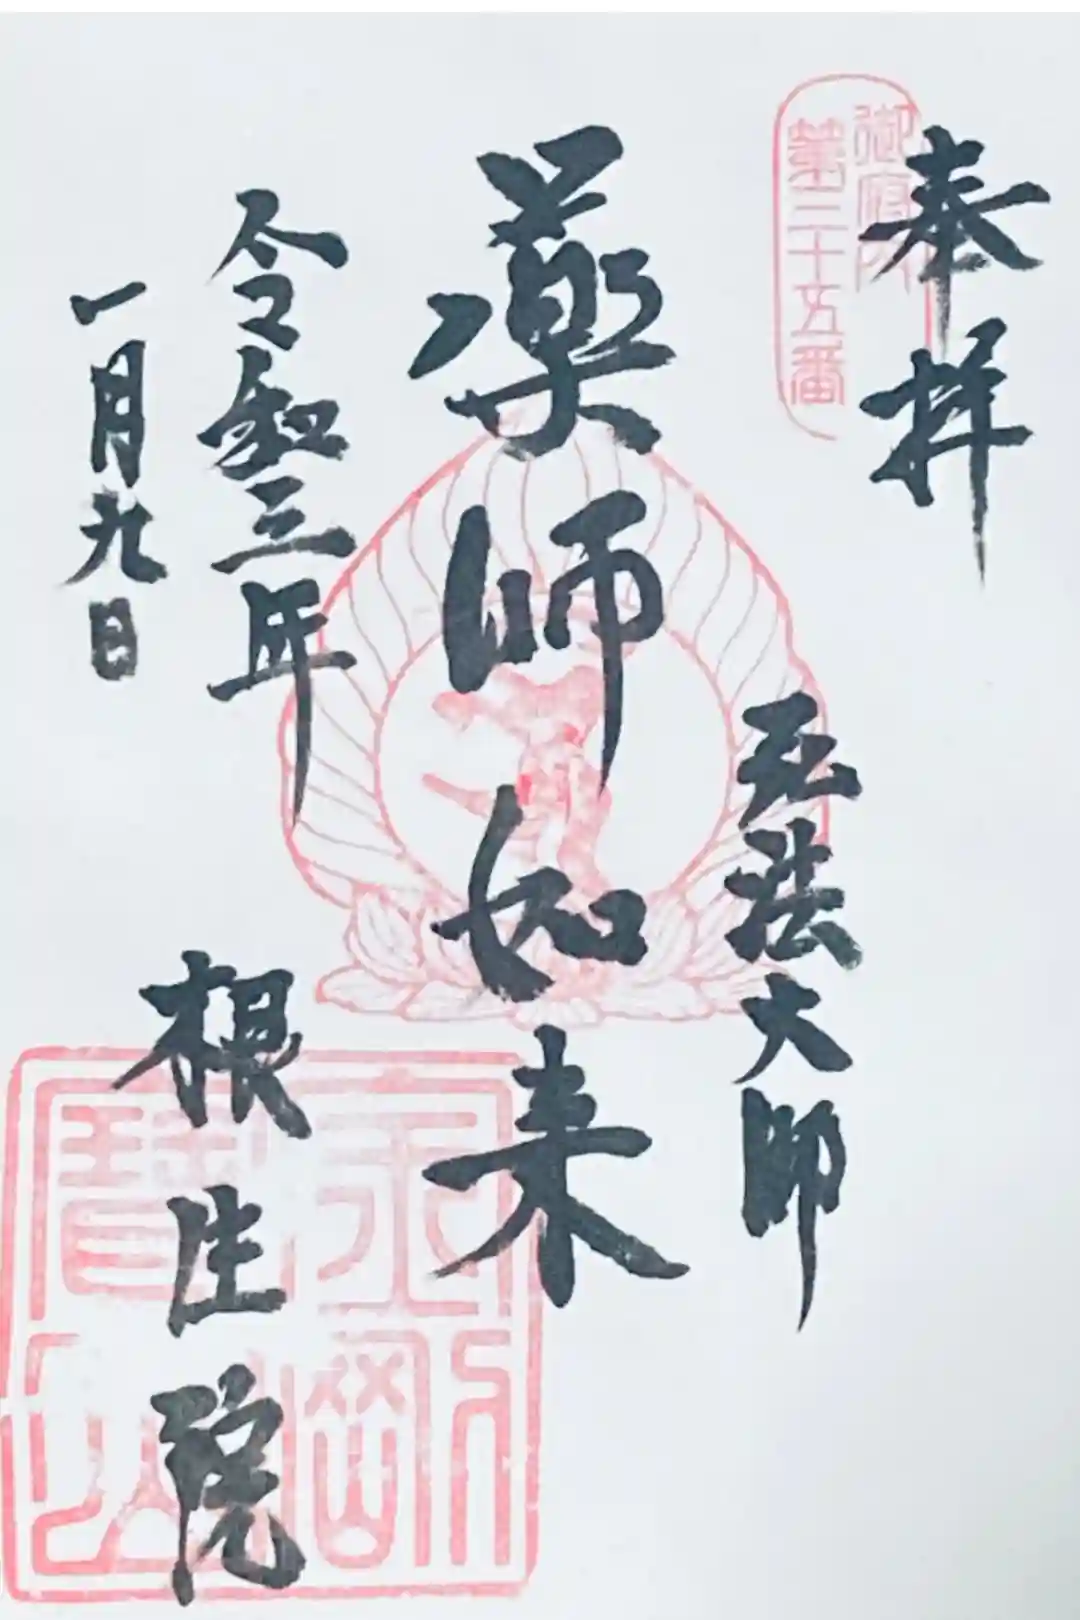 奉拝
御府内
第三十五番
弘法大師
薬師如来
令和三年
一月九日
根生院
金剛
宝山